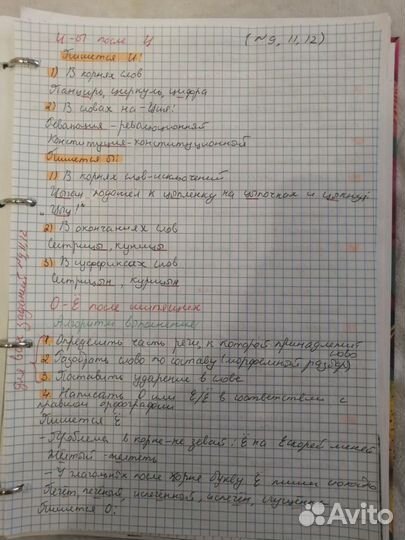 И-Ы после Ц (№9, 11, 12)
Пишется И:
1) В корнях слов
Панцирь, циркуль, цифра
2) В словах на -Ция:
революционной
Конституция - конституционной
Пишется Ы:
1) В корнях слов-исключений
Цыган подошёл к цыплёнку на цыпочках и цыкнул
"Цыц!"
2) В окончаниях слов
Сестрицы, куницы
3) В суффиксах слов
Сестрицын, курицын
О-Ё после шипящих
Алгоритм выполнения
Для всех заданий №9,11,12
1. Определить часть речи, к которой принадлежит слово
2. Разобрать слово по составу (морфемный разбор)
3. Поставить ударение в слове
4. Написать О или Ё/Е в соответствии с
правилом орфографии
Пишется Ё
- Проблема в корне - не зевай: Ё на Е скорей меняй
Жёлтый - желтеть
- У глагольных после корня букву Ё пиши
Печёт, печёный, испечённый, испечён,
Пишется О:
Avito